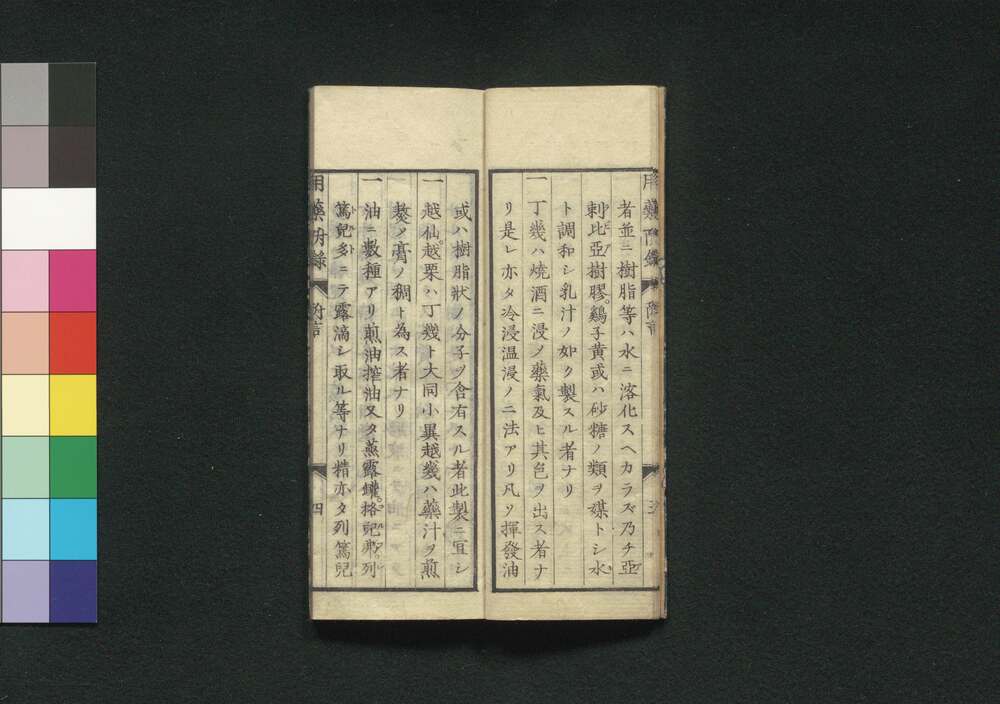 者並ニ樹脂等ハ水ニ溶化スヘカラズ乃チ亞
剌比亞樹膠。鷄子黄或ハ砂糖ノ類ヲ媒トシ水
ト調和シ乳汁ノ如ク製スル者ナリ
一 丁幾ハ焼酒ニ浸ノ藥氣及ヒ其色ヲ出ス者ナ
リ是レ亦タ冷浸温浸ノ二法アリ凡ソ揮發油
或ハ樹脂狀ノ分子ヲ含有スル者此製ニ宜シ
一 越仙越栗ハ丁幾ト大同小異越幾ハ藥汁ヲ煎
熬ノ膏ノ稠ト為ス者ナリ
一 油ニ数種アリ煎油搾油又タ蒸露鑵
列
篤兒多ニテ露滴シ取ル等ナリ精亦タ列篤兒
用藥附錄
附言
四